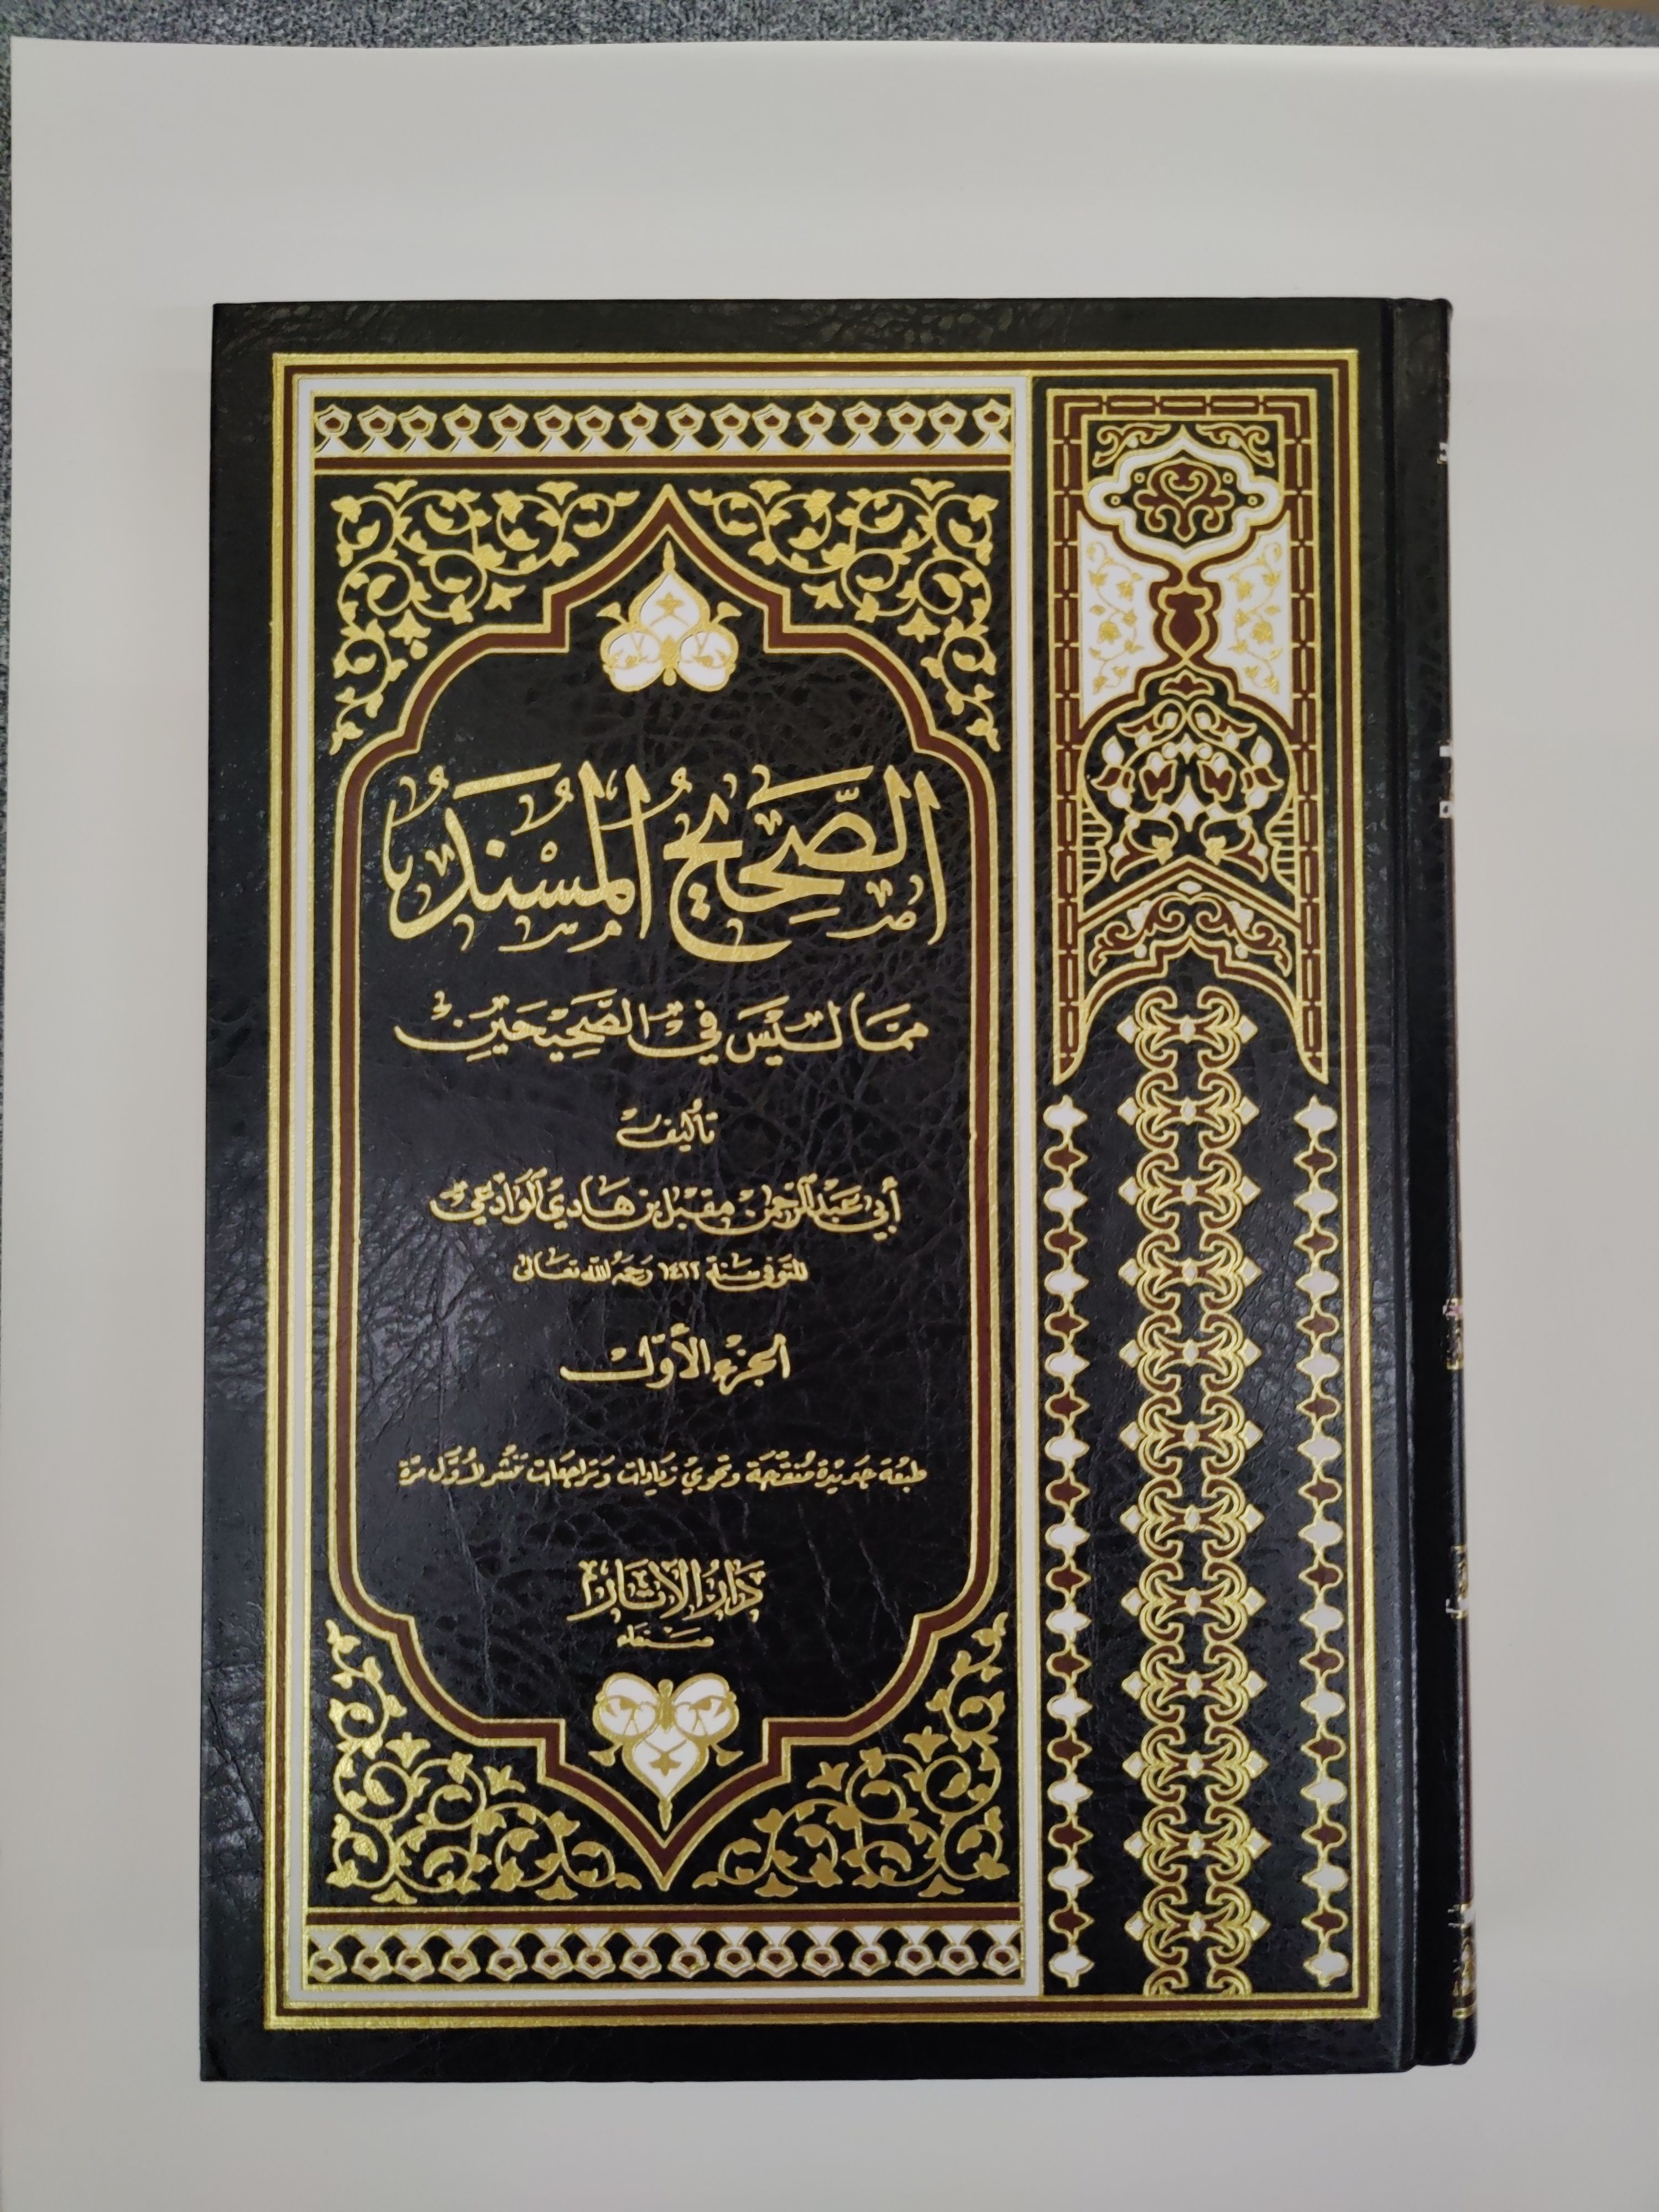 الصَّحِيحُ المُسْنَدُ
مِمَّا لَيْسَ فِي الصَّحِيْحَيْنِ
تأليف
أبي عَبْدِ الرَّحمٰن مقبل بن هادي الوَادِعي
المتوفى سنة ١٤٢٢ رحمه الله تعالى
الجزء الأول
طبعة جديدة منقحة وتحوي زيادات وتراجعات تنشر لأول مرة
دَارُ الآثَار
صنعاء